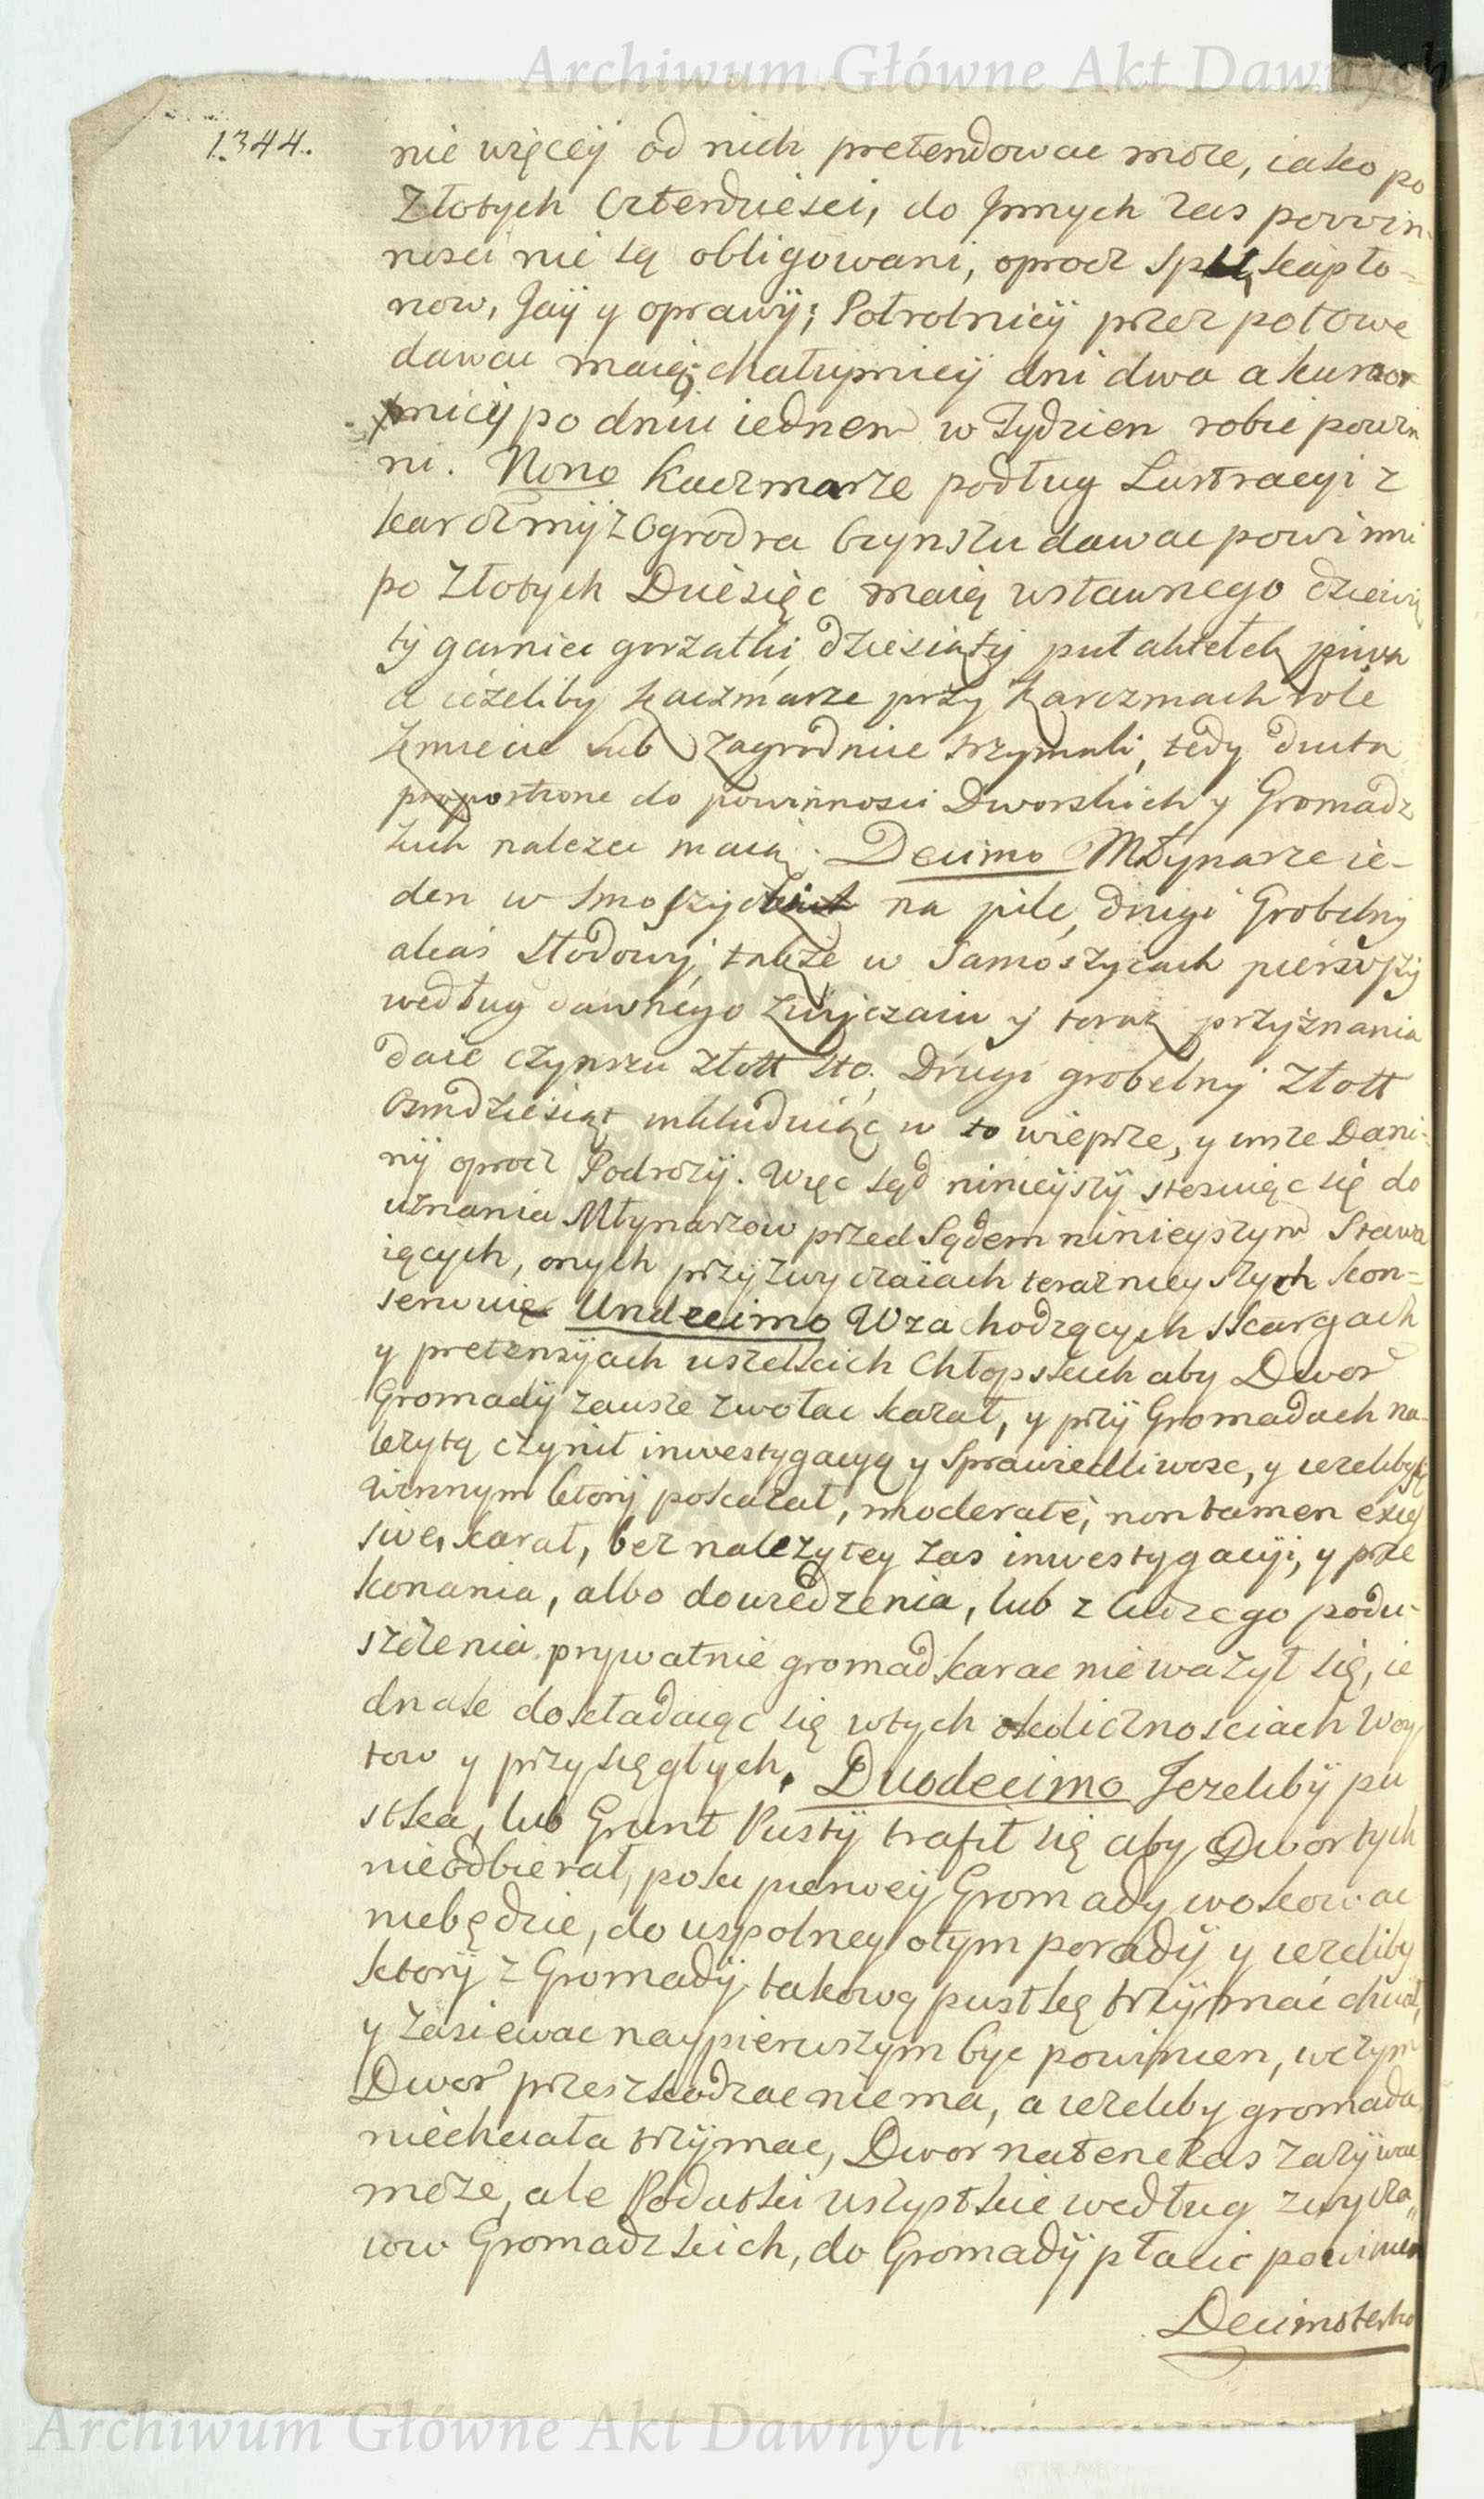 Archiwum Główne Akt Dawnych
1344.
nie więcey od nich pretendowac moze, iako po
Złotych Czterdziesci, do Jnnych zas powin-
nosci nie są obligowani, oprocz Spu, kapło-
now, Jaÿ y oprawÿ; Połrolnicÿ przez połowe
dawac maią, chałupnicÿ dni dwa a kumor
nicÿ po dniu iednem w Tydzien robic powin
ni. Nono Kaczmarze podług Lustracyi z
karczmÿ z Ogrodra Czynszu dawac powinni
po Złotych Dziesięc maią ustawnego dziewią
tÿ garniec gorzałki, dziesiątÿ puł achtelek piwa
a ieżeliby kaczmarze przy karczmach role
kmiecie Lub zagrodnice trzymali, tedy duta
propostione do powinnosci Dworskich y Gromadz
kich nalezec maią. Decimo Młynarze ie-
den w Smoszyc na pile, drugi Grobelny
alias Słodowy, także w Samoszycach pierwszy
według dawnego zwyczaiu y teraz przyznania
daie czynszu złott sto, Drugi grobelny złott
Osmdziesiąt inkluduiąc w to wieprze, y insze Dani-
nÿ oprocz Podrozÿ. Więc Sąd ninieÿszÿ stosuiąc się do
uznania Młynarzow przed Sądem ninieyszym Stawa
iących, onych przÿ zwyczaiach teraznieyszych kon-
serwuie Undecimo W zachodzących skargach
y pretensÿach wszelkich Chłopskich aby Dwor
Gromadÿ zawsze zwołac kazał, y przÿ Gromadach na-
lezytą czynił inwestygacyą y Sprawiedliwosc, y iezeliby się
winnym ktorÿ pokazał, moderate, non tamen exces
sive, karał, bez nalezytey zas inwestygacyi, y prze
konania, albo dowiedzenia, lub z cudzego podu-
szczenia prywatnie gromad karac nie wazył się, ie
dnak dokładaiąc się w tych okolicznosciach Woy
tow y przysięgłych. Duodecimo Jezelibÿ pu
stka, lub Grunt Pustÿ trafił się aby Dwor tych
nieodbierał, poki pierweÿ Gromady wokowac
niebędzie, do uspolney otym poradÿ y iezeliby
ktorÿ z Gromadÿ takową pustkę trzÿmać chciał,
y Zasiewac naypierwszym byc powinien, wczym
Dwor przeszkodzac niema, a iezeliby gromada
niechciała trzÿmac, Dwor natenczas zazÿwac
może, ale Podatki wszystkie według zwycza-
iow Gromadzkich, do Gromadÿ płacic powinien
Decimotertio
Archiwum Główne Akt Dawnych